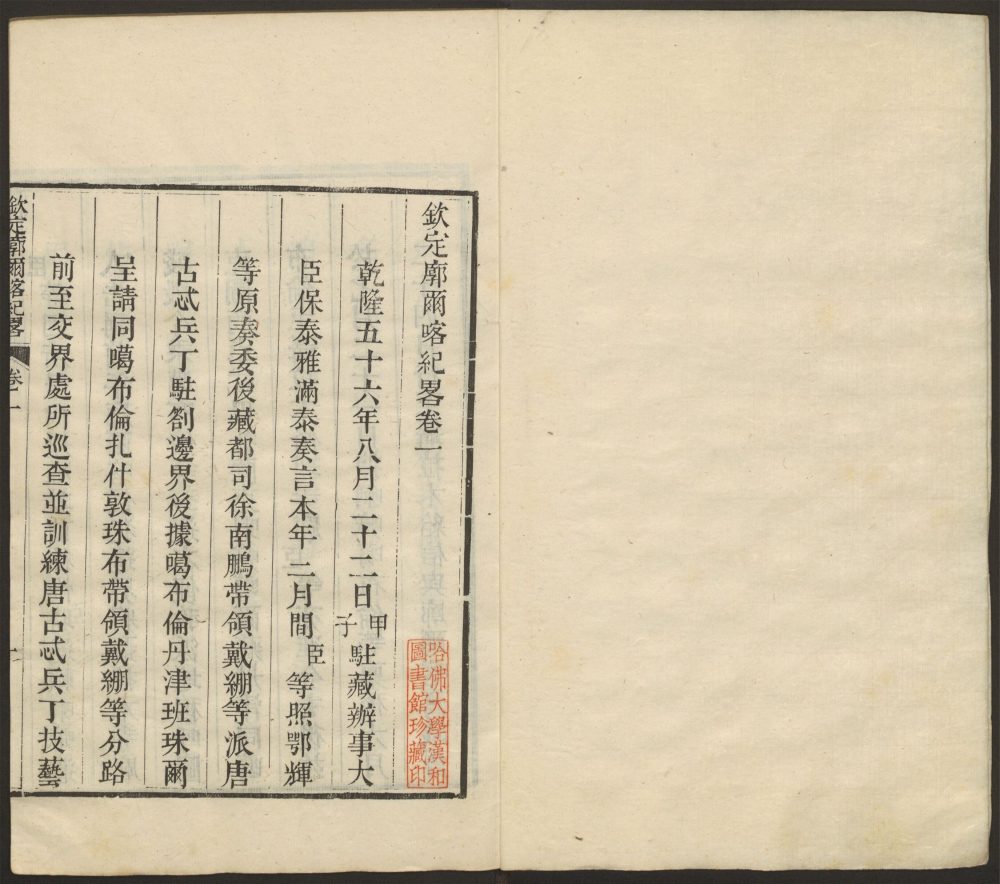 欽定廓爾喀紀畧卷一
乾隆五十六年八月二十二日甲子駐藏辦事大
臣保泰雅滿泰奏言本年二月間臣等照鄂輝
等原奏委後藏都司徐南鵬帶領戴綳等派唐
古忒兵丁駐劄邊界後據噶布倫丹津班珠爾
呈請同噶布倫扎什敦珠布帶領戴綳等分路
前至交界處所巡查並訓練唐古忒兵丁技藝
欽定廓爾喀紀畧
卷一
一
哈佛大學漢和
圖書館珍藏印